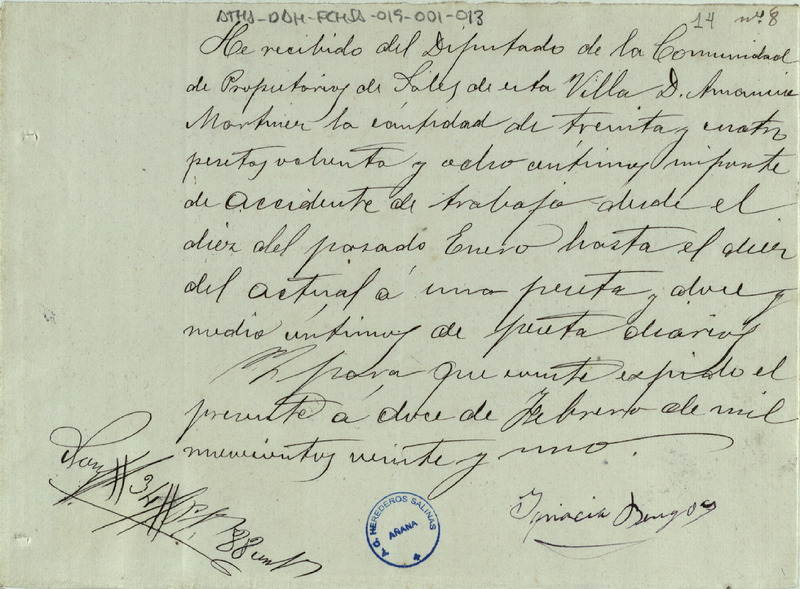 ATHA-DAH-FCHSA-019-001-013
14 nº 8
He recibido del Diputado de la Comunidad
de Propietarios de Sales de esta Villa D. Amancio
Martinez la cantidad de treinta y cuatro
pesetas ochenta y ocho centimos importe
de accidente de trabajo desde el
diez del pasado Enero hasta el diez
del actual á una peseta y doce y
medio centimos de peseta diarios
Y para que conste expido el
presente á doce de Febrero de mil
novecientos veinte y uno.
Son # 34 # 88
Ignacia
HEREDEROS SALINAS
AÑANA